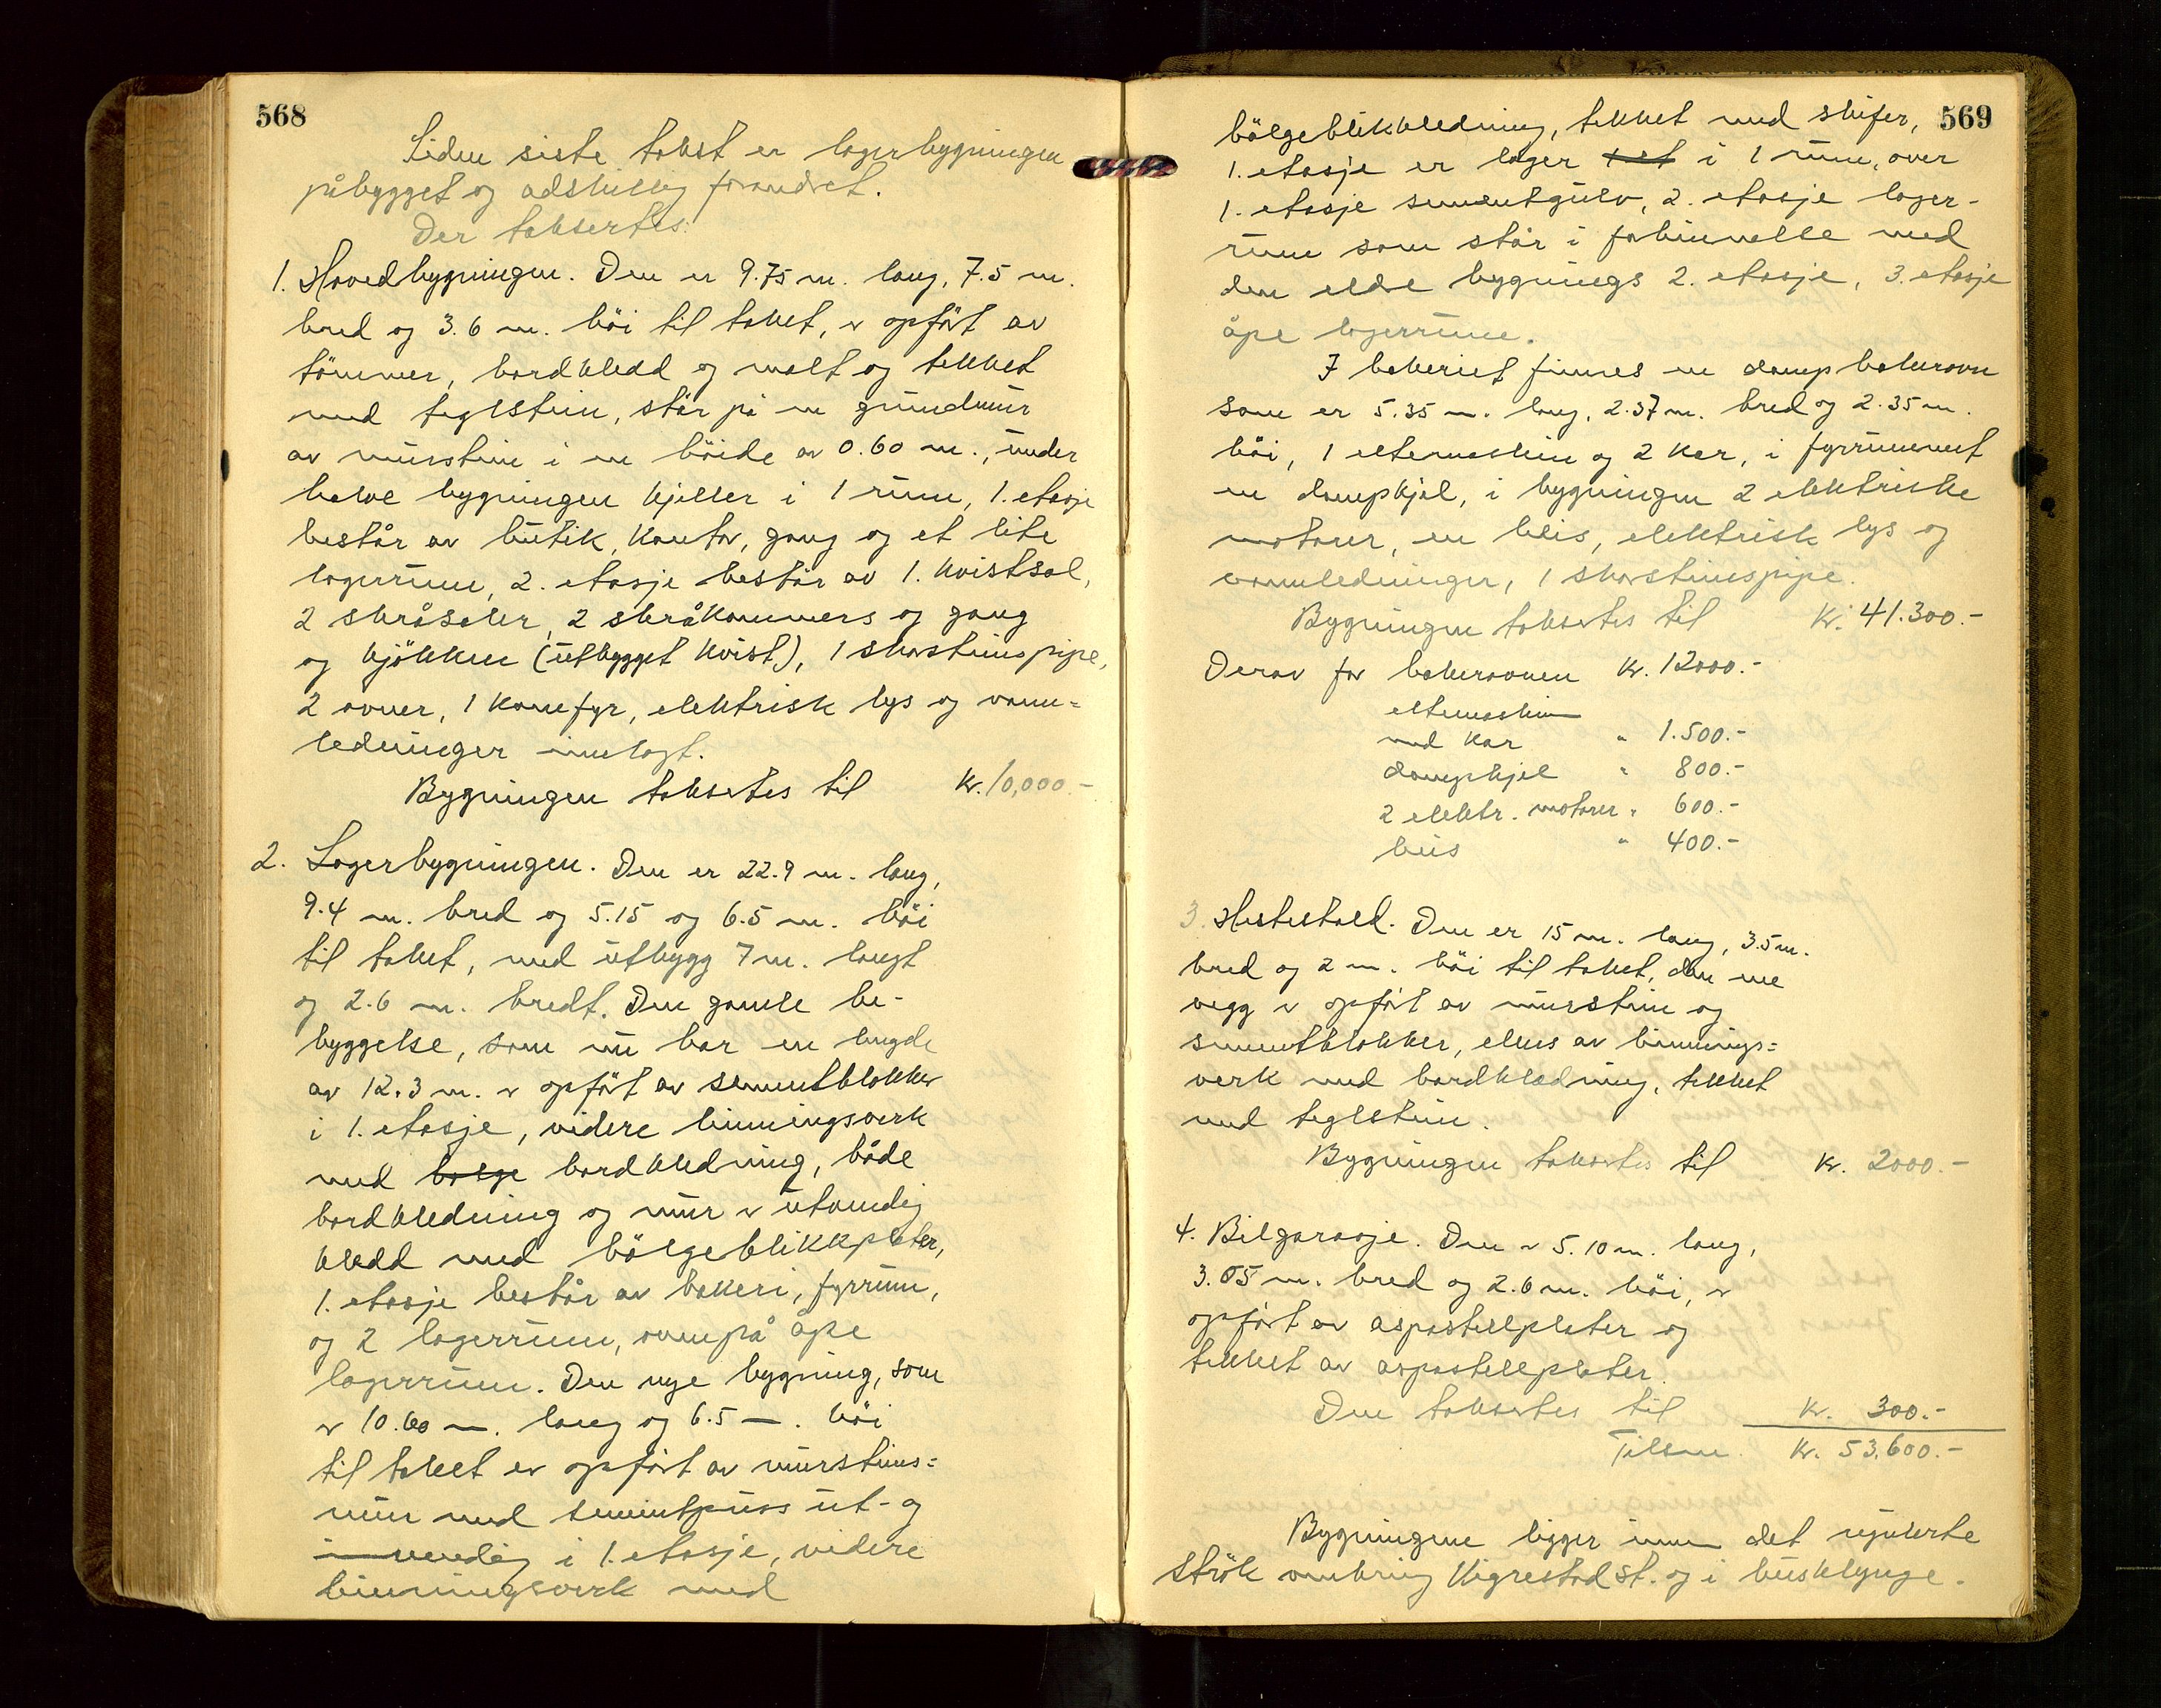 568
Siden siste takst er lagerbygningen
påbygget og adskillig forandret.
Der taksertes:
1. Hovedbygningen. Den er 9.75 m. lang, 7.5 m.
bred og 3.6 m. höi til taket, er opfört av
tömmer, bordkledd og malt og tekket
med teglstein, står på en grundmur
av murstein i en höide av 0.60 m., under
halve bygningen kjeller i 1 rum, 1. etasje
består av butik, kontor, gang og et lite
lagerrum, 2. etasje består av 1. kvistsal,
2 skråsaler, 2 skråkammers og gang
og kjökken (utbygget kvist), 1 skorsteinspipe,
2 ovner, 1 komfyr, elektrisk lys og vann=
ledninger innlagt.
Bygningen taksertes til Kr. 10,000.-
2. Lagerbygningen. Den er 22.9 m. lang,
9.4 m. bred og 5.15 og 6.5 m. höi
til taket, med utbygg 7 m. langt
og 2.6 m. bredt. Den gamle be-
byggelse, som nu har en lengde
av 12.3 m. er opfört av sementblokker
i 1. etasje, videre binningsverk
med bölge bordkledning, både
bordkledning og mur er utvendig
kledd med bölgeblikkplater,
1. etasje består av bakeri, fyrrum,
og 2 lagerrum, ovenpå åpe
lagerrum. Den nye bygning, som
er 10.60 m. lang og 6.5 m. höi
til taket er opfört av mursteins=
mur med sementpuss ut- og
innvendig i 1. etasje, videre
binningsverk med
569
bölgeblikkledning, tekket med skifer,
1. etasje er lager 1 et i 1 rum, over
1. etasje sementgulv, 2. etasje lager-
rum som står i forbinnelse med
den eldre bygnings 2. etasje, 3. etasje
åpe lagerrum.
I bakeriet finnes en dampbakerovn
som er 5.35 m. lang, 2.37 m. bred og 2.35 m.
höi, 1 eltemaskin og 2 kar, i fyrrummet
en dampkjel, i bygningen 2 elektriske
motorer, en heis, elektrisk lys og
vannledninger, 1 skorsteinspipe.
Bygningen taksertes til Kr. 41.300.-
Derav for bakerovnen Kr. 12000.-
eltemaskin
med kar " 1.500.-
dampkjel " 800.-
2 elektr. motorer " 600.-
heis " 400.-
3. Hestestald. Den er 15 m. lang, 3.5 m.
bred og 2 m. höi til taket, den ene
vegg er opfört av murstein og
sementblokker, ellers av binnings=
verk med bordkledning, tekket
med teglstein.
Bygningen taksertes til Kr. 2000.-
4. Bilgarasje. Den er 5.10 m. lang,
3.05 m. bred og 2.6 m. höi, er
opfört av aspastellplater og
tekket av aspastellplater.
Den taksertes til Kr. 300.-
Tilsm. Kr. 53,600.-
Bygningene ligger innen det regulerte
strök omkring Vigrestad st. og i husklynge.